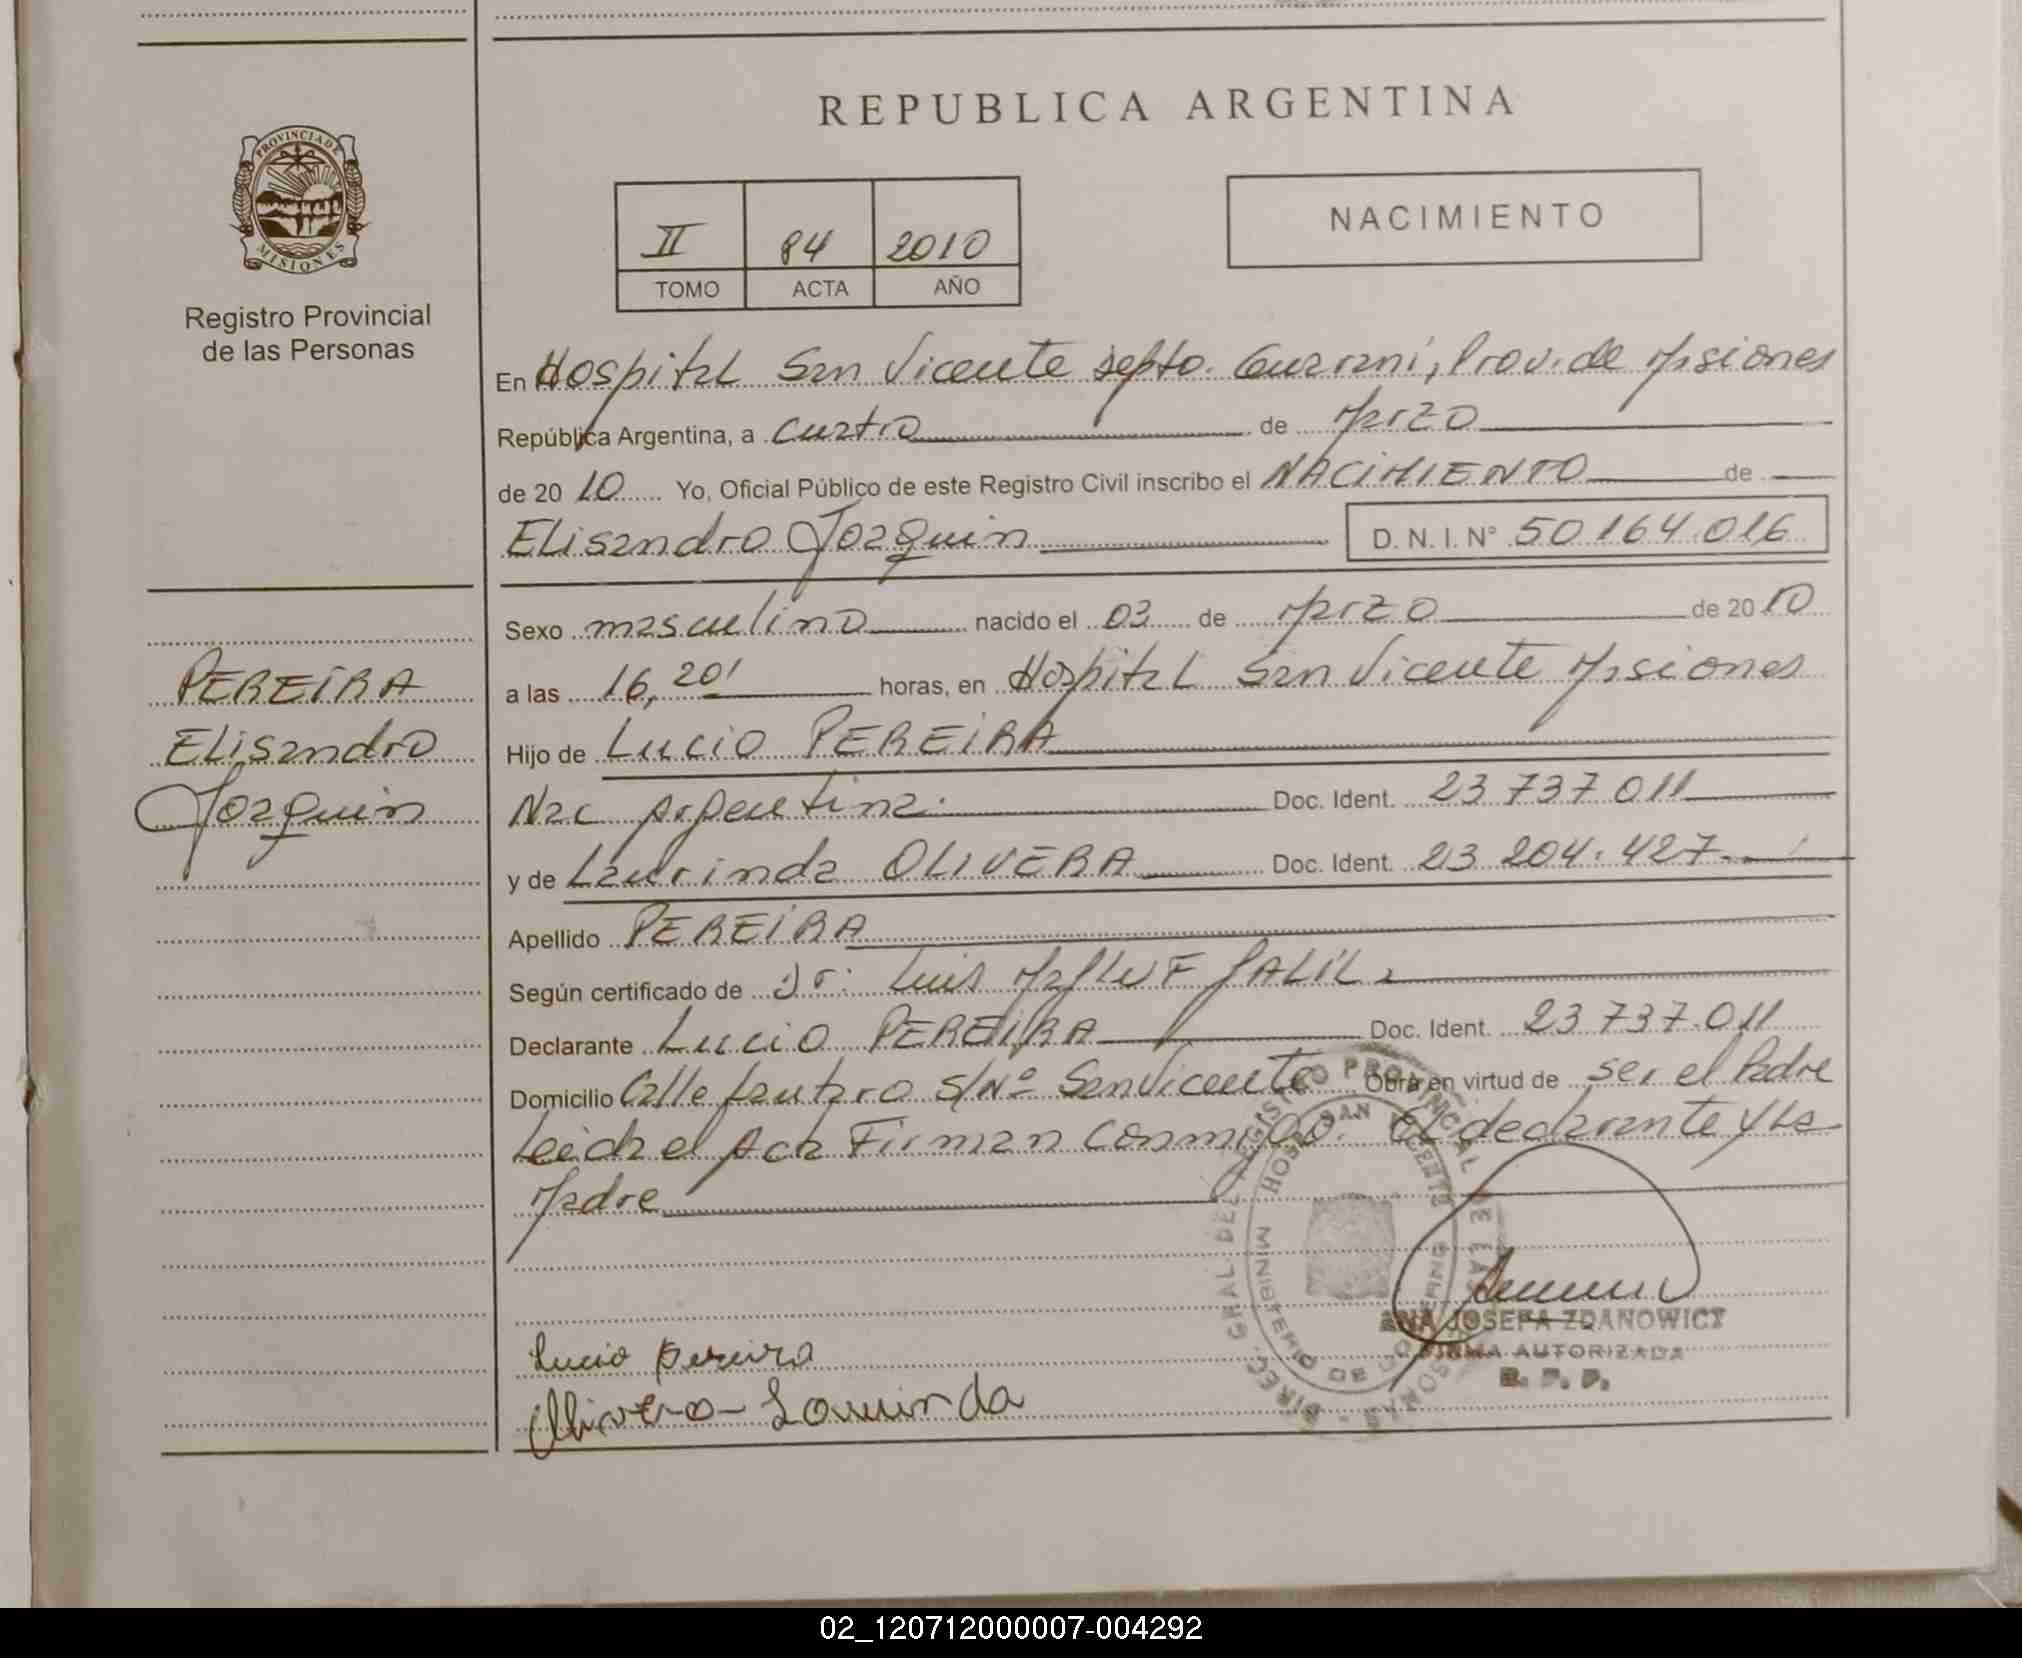 REPUBLICA ARGENTINA
PROVINCIA DE
MISIONES
Registro Provincial
de las Personas
II 84 2010
TOMO ACTA AÑO
NACIMIENTO
En Hospital San Vicente Depto. Guarani, Prov. de Misiones
República Argentina, a cuatro de Marzo
de 2010 Yo, Oficial Público de este Registro Civil inscribo el NACIMIENTO de
Elisandro Joaquin D.N.I. Nº 50.164.016
Sexo masculino nacido el 03 de Marzo de 2010
a las 16,20' horas, en Hospital San Vicente Misiones
Hijo de Lucio PEREIRA
Nac Argentina. Doc. Ident. 23 737 011
y de Laurinda OLIVERA Doc. Ident. 23 204. 427.
Apellido PEREIRA
Según certificado de Dr. Luis JALIL
Declarante Lucio PEREIRA Doc. Ident. 23 737.011
Domicilio Calle Lautaro S/Nº San Vicente Obra en virtud de ser el Padre
Leida el Acta Firman conmigo. El declarante y la
Madre
PEREIRA
Elisandro
Joaquin
Lucio Pereira
Olivera Laurinda
DIREC. GRAL. DEL REGISTRO PROVINCIAL DE LAS PERSONAS
HOSP. SAN VICENTE
MINISTERIO DE GOBIERNO
ANA JOSEFA ZDANOWICZ
FIRMA AUTORIZADA
R. P. P.
02_120712000007-004292